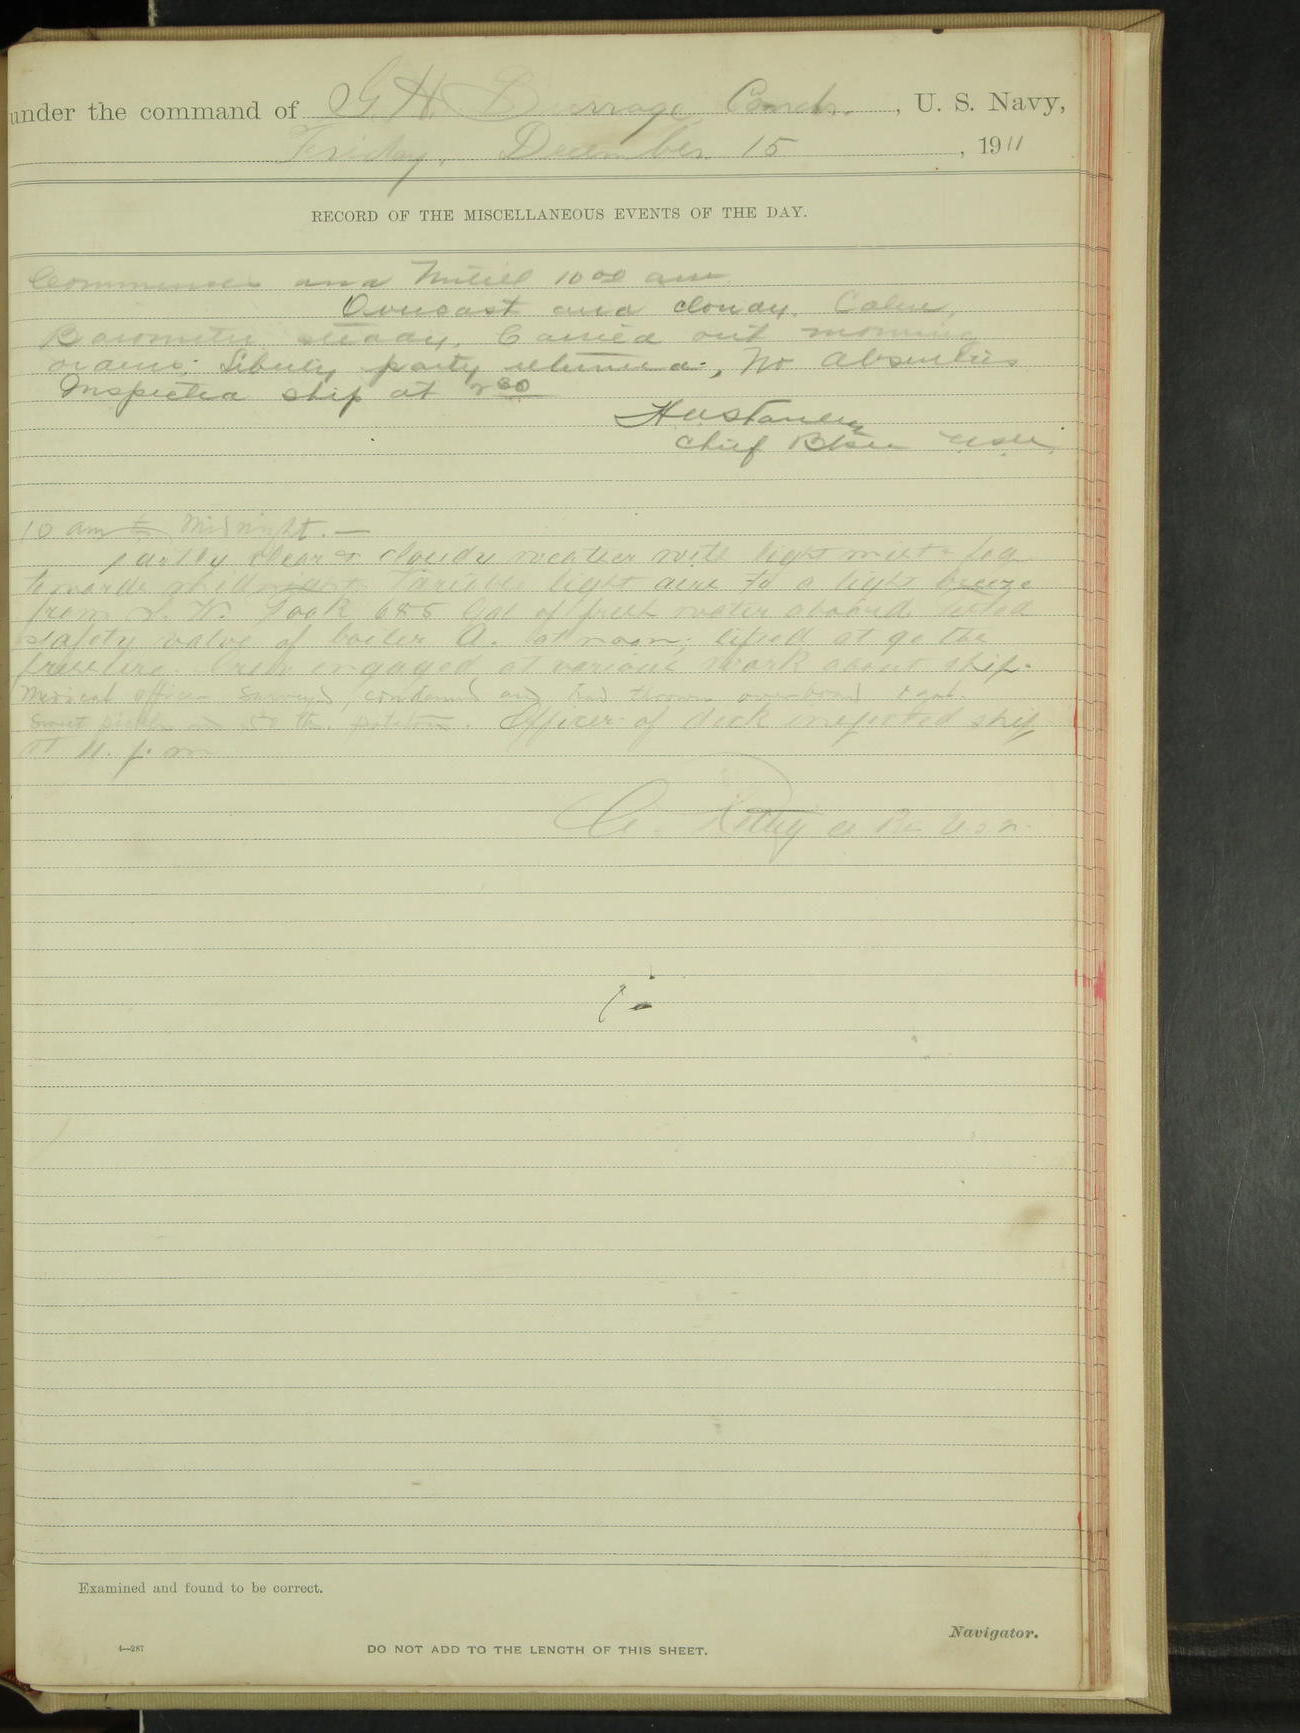 under the command of G. H. Burrage Comdr. , U. S. Navy,
Friday, December 15 , 1911
RECORD OF THE MISCELLANEOUS EVENTS OF THE DAY.
Commences and until 10 00 am
Overcast and cloudy. Calm,
Barometer steady. Carried out morning
orders. Liberty party returned, No absentees
Inspected ship at
Chief Btsn USN.
10 am to Midnight.—
Partly clear & cloudy weather with light mist & fog
towards midnight. Variable light airs to a light breeze
from S. W. Took 685 Gal of fresh water aboard. Tested
safety valve of boiler A. at noon; lifted at 90 lbs
pressure. Crew engaged at various work about ship.
Medical officer surveyed, condemned and had thrown overboard 1 gal.
sweet pickles and 50 lbs. potatoes. Officer of deck inspected ship
at 11. p. m
U.S.N.
Examined and found to be correct.
Navigator.
4—287
DO NOT ADD TO THE LENGTH OF THIS SHEET.